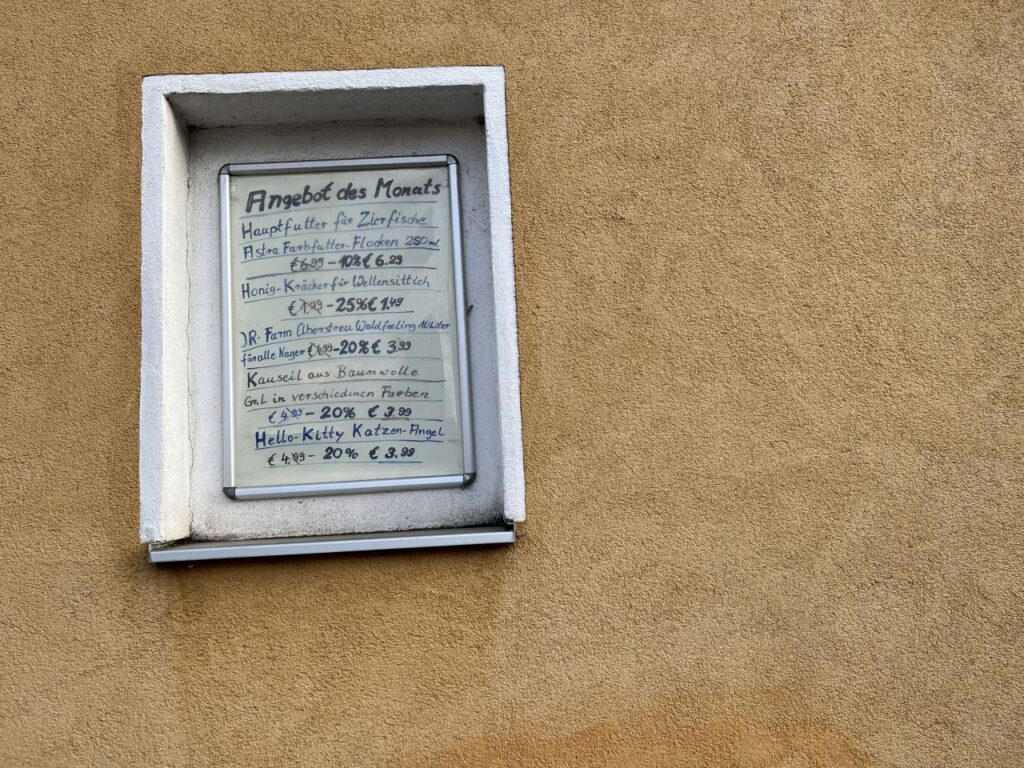 Angebot des Monats
Hauptfutter für Zierfische
Astra Farbfutter-Flocken 250ml
€ 6.99 - 10% € 6.29
Honig-Kräcker für Wellensittich
€ 1.99 - 25% € 1.49
JR-Farm Überstreu Waldfeeling 10 Liter
für alle Nager € 4.99 -20% € 3.99
Kauseil aus Baumwolle
Gr. L in verschiedenen Farben
€ 4.99 - 20% € 3.99
Hello-Kitty Katzen-Angel
€ 4.99 - 20% € 3.99